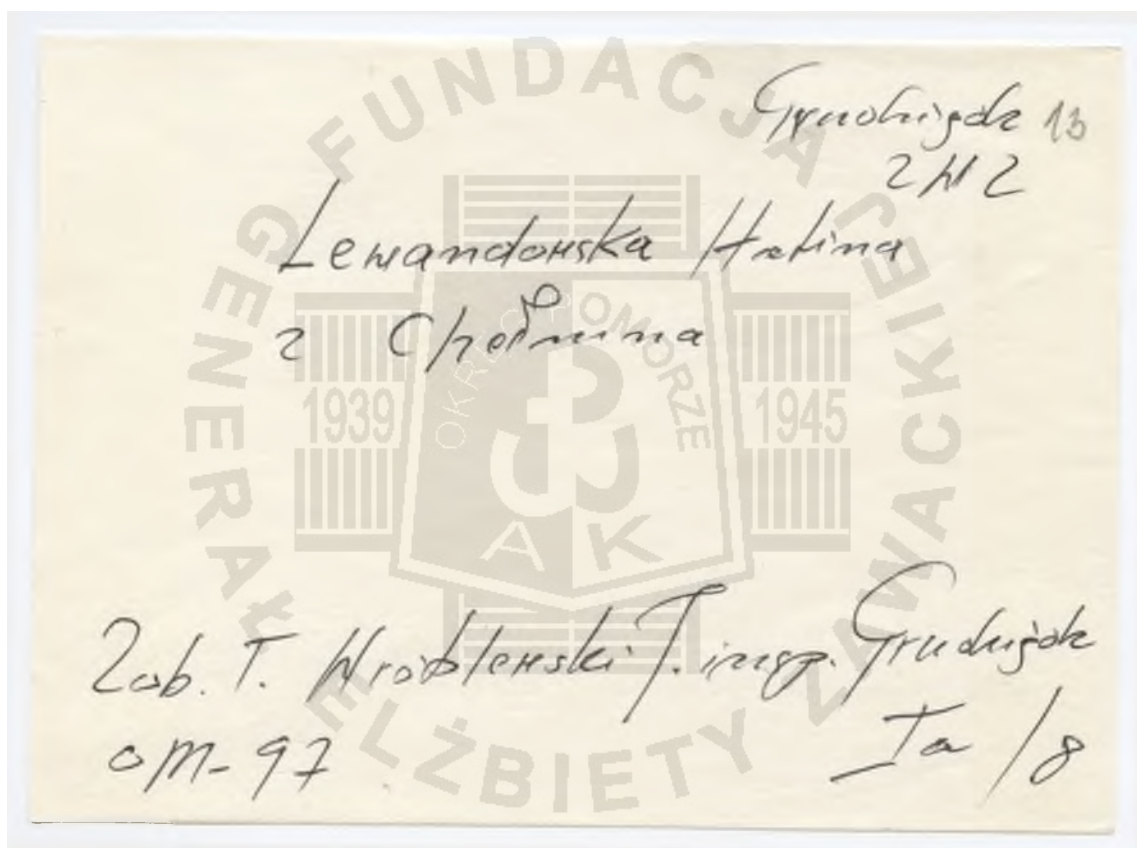 Grudziądz 13
ZWZ
Lewandowska Halina
z Chełmna
Zob. T. Wróblewski J. insp. Grudziądz
OM-97
Ia/8
FUNDACJA GENERAŁ ELŻBIETY ZAWACKIEJ
OKRĘG POMORZE
1939
1945
AK